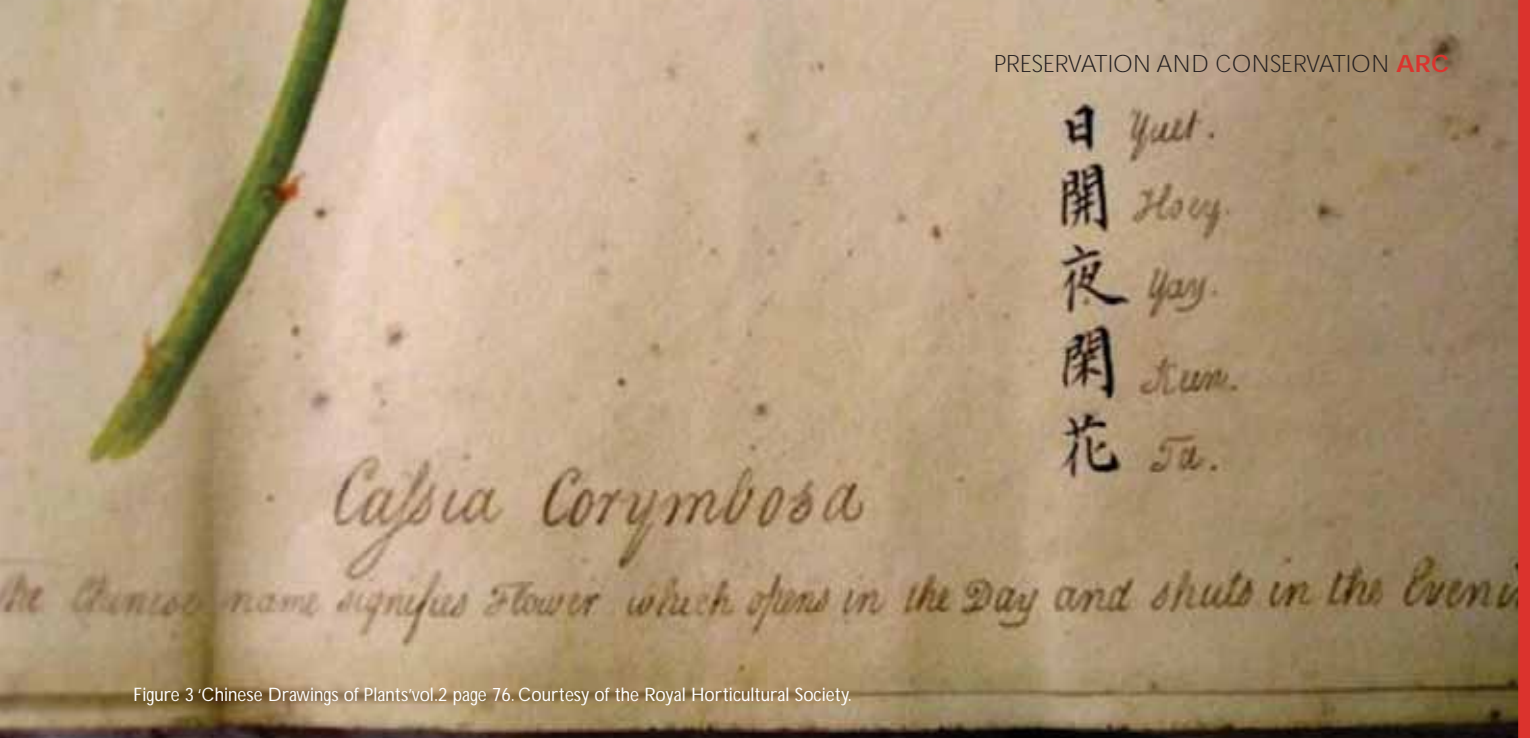 PRESERVATION AND CONSERVATION ARC
日 Yuet.
開 Hoey.
夜 Yay.
閑 Kun.
花 Fa.
Caſsia Corymbosa
the Chinese name signifies Flower which opens in the Day and shuts in the Eveni
Figure 3 ‘Chinese Drawings of Plants’vol.2 page 76. Courtesy of the Royal Horticultural Society.